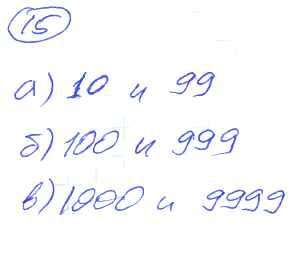 15
а) 10 и 99
б) 100 и 999
в) 1000 и 9999